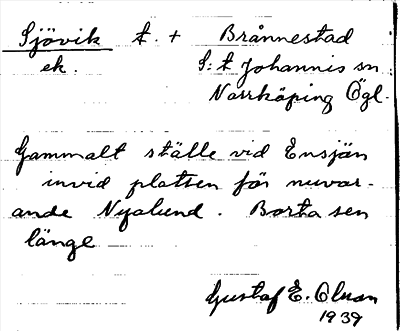 Sjövik t. + Brånnestad
ek. S:t Johannis sn
Norrköping Ögl.
Gammalt ställe vid Ensjön
invid platsen för nuvar-
ande Nyalund. Borta sen
länge
Gustaf E. Olson
1939